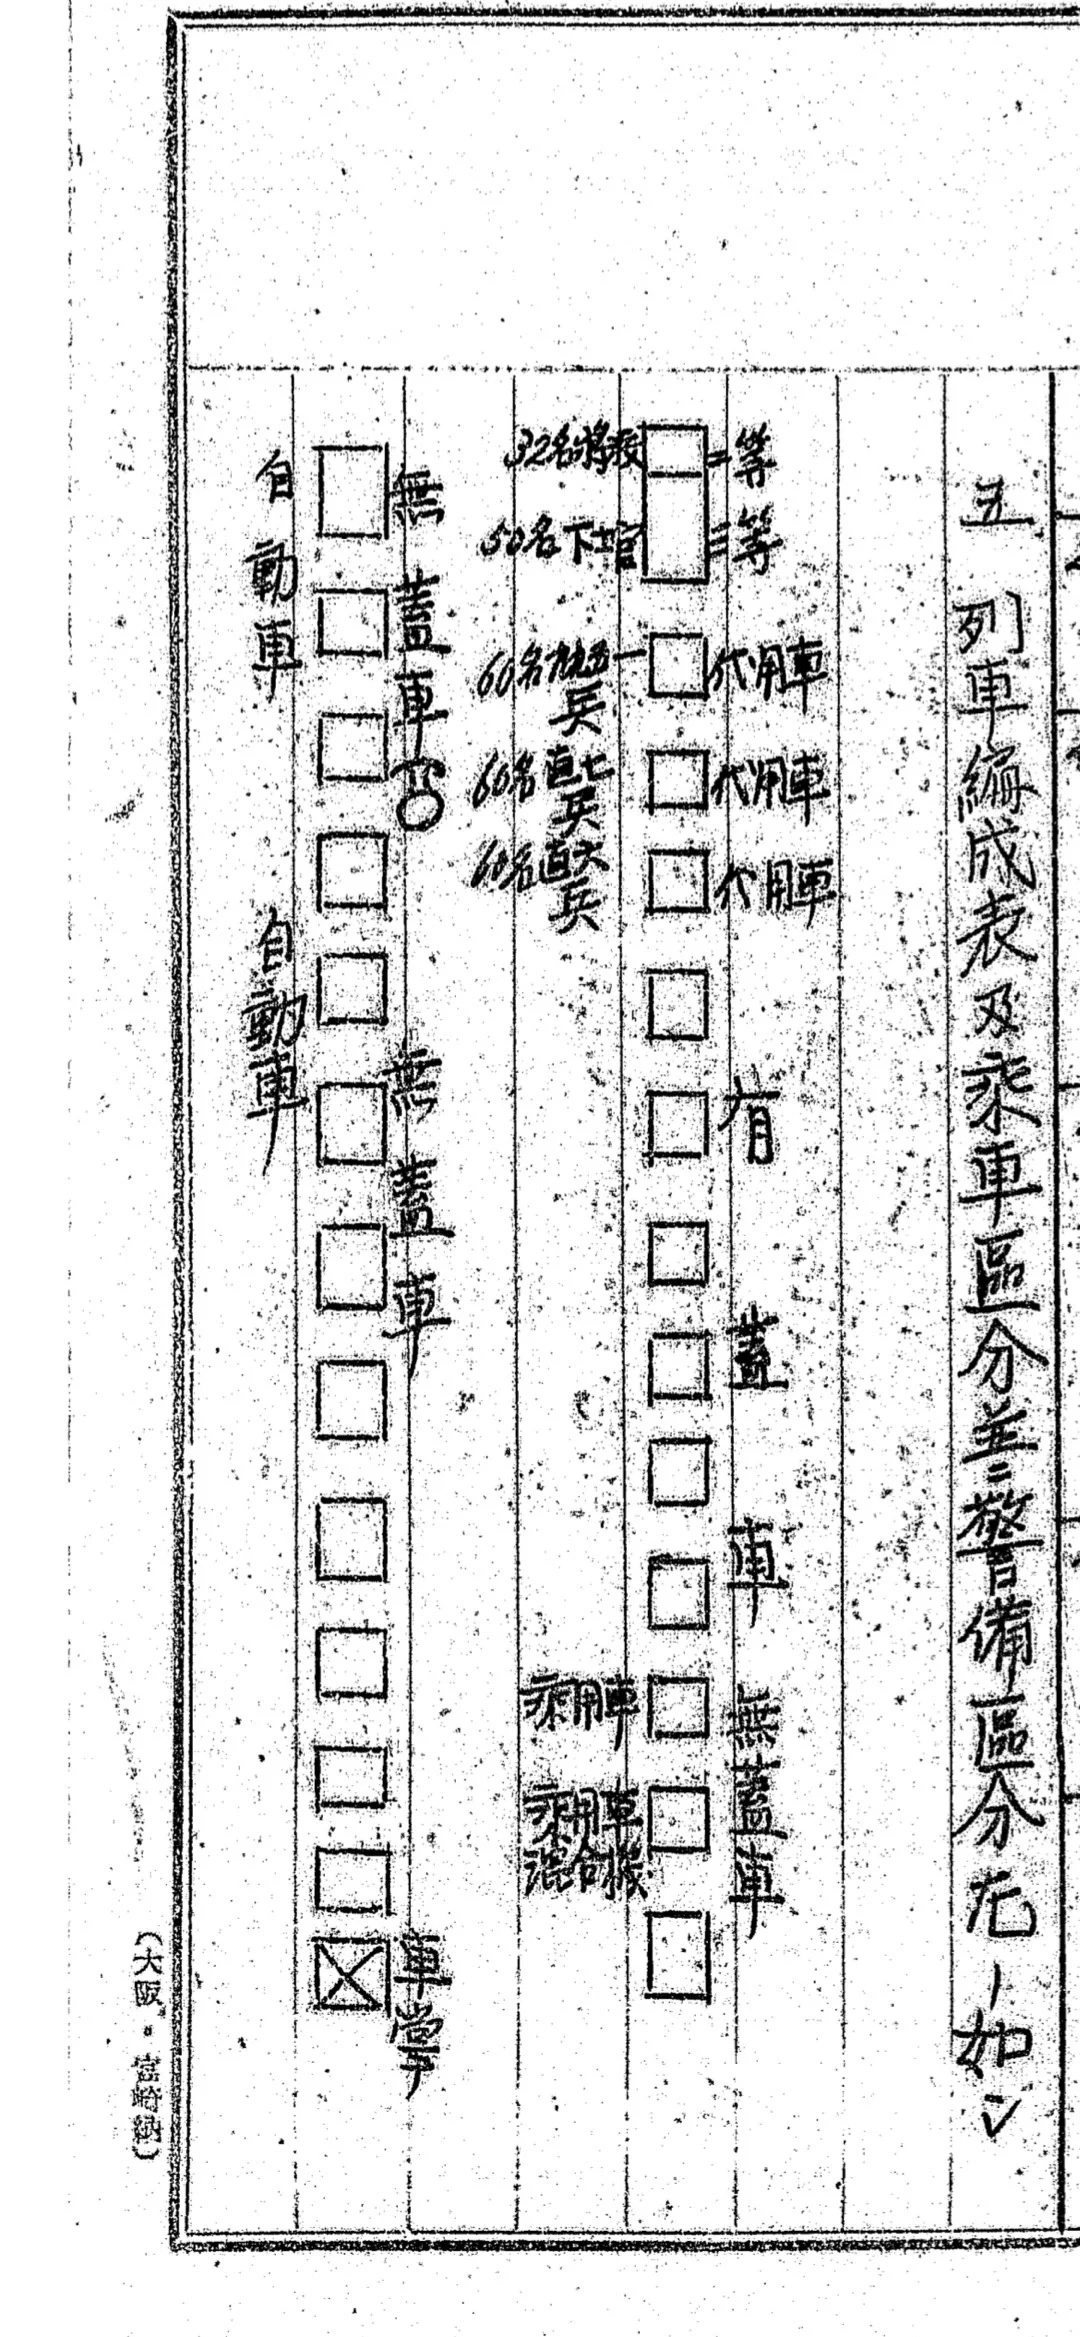 五 列車編成表及乘車區分並ニ警備區分左ノ如シ
二等
三等
代用車
代用車
代用車
有蓋車
無蓋車
32名將校
50名下士官
60名
兵
60名
兵
60名
兵
乘用車
乘用車
混合機
無蓋車
無蓋車
車掌
自動車
自動車
(大阪・